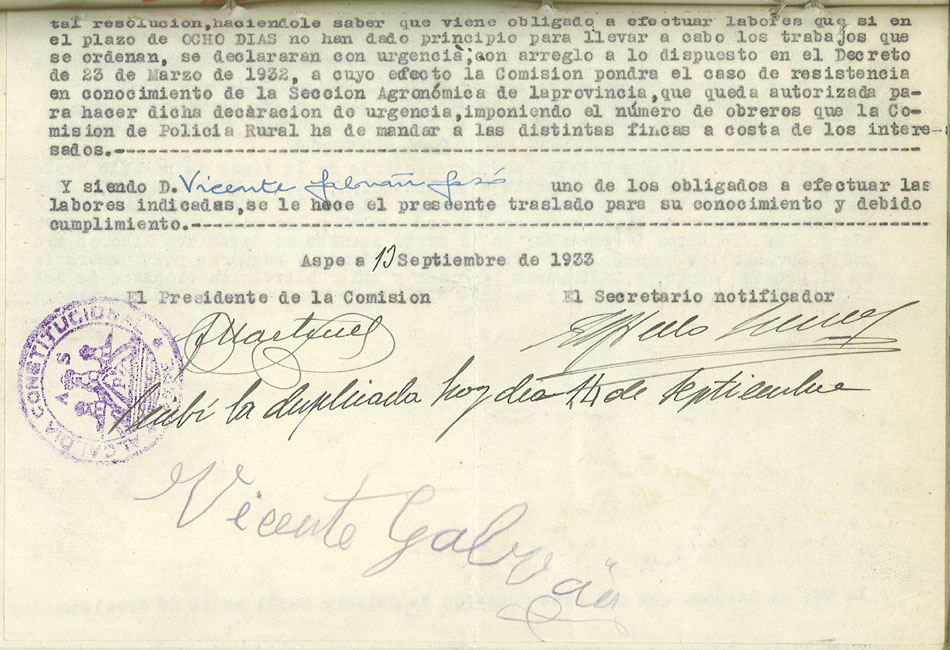 tal resolucion,haciendole saber que viene obligado a efectuar labores que si en
el plazo de OCHO DIAS no han dado principio para llevar a cabo los trabajos que
se ordenan, se declararan con urgencia, con arreglo a lo dispuesto en el Decreto
de 23 de Marzo de 1932, a cuyo efecto la Comision pondra el caso de resistencia
en conocimiento de la Seccion Agronómica de laprovincia,que queda autorizada pa-
ra hacer dicha decàracion de urgencia,imponiendo el número de obreros que la Co-
mision de Policia Rural ha de mandar a las distintas fincas a costa de los intere-
sados.-
Y siendo D. Vicente Galvañ uno de los obligados a efectuar las
labores indicadas,se le hace el presente traslado para su conocimiento y debido
cumplimiento.-
Aspe a 13 Septiembre de 1933
El Presidente de la Comision El Secretario notificador
ALCALDIA CONSTITUCIONAL * ASPE
Recibí la duplicada hoy dia 14 de Septiembre
Vicente Galvañ